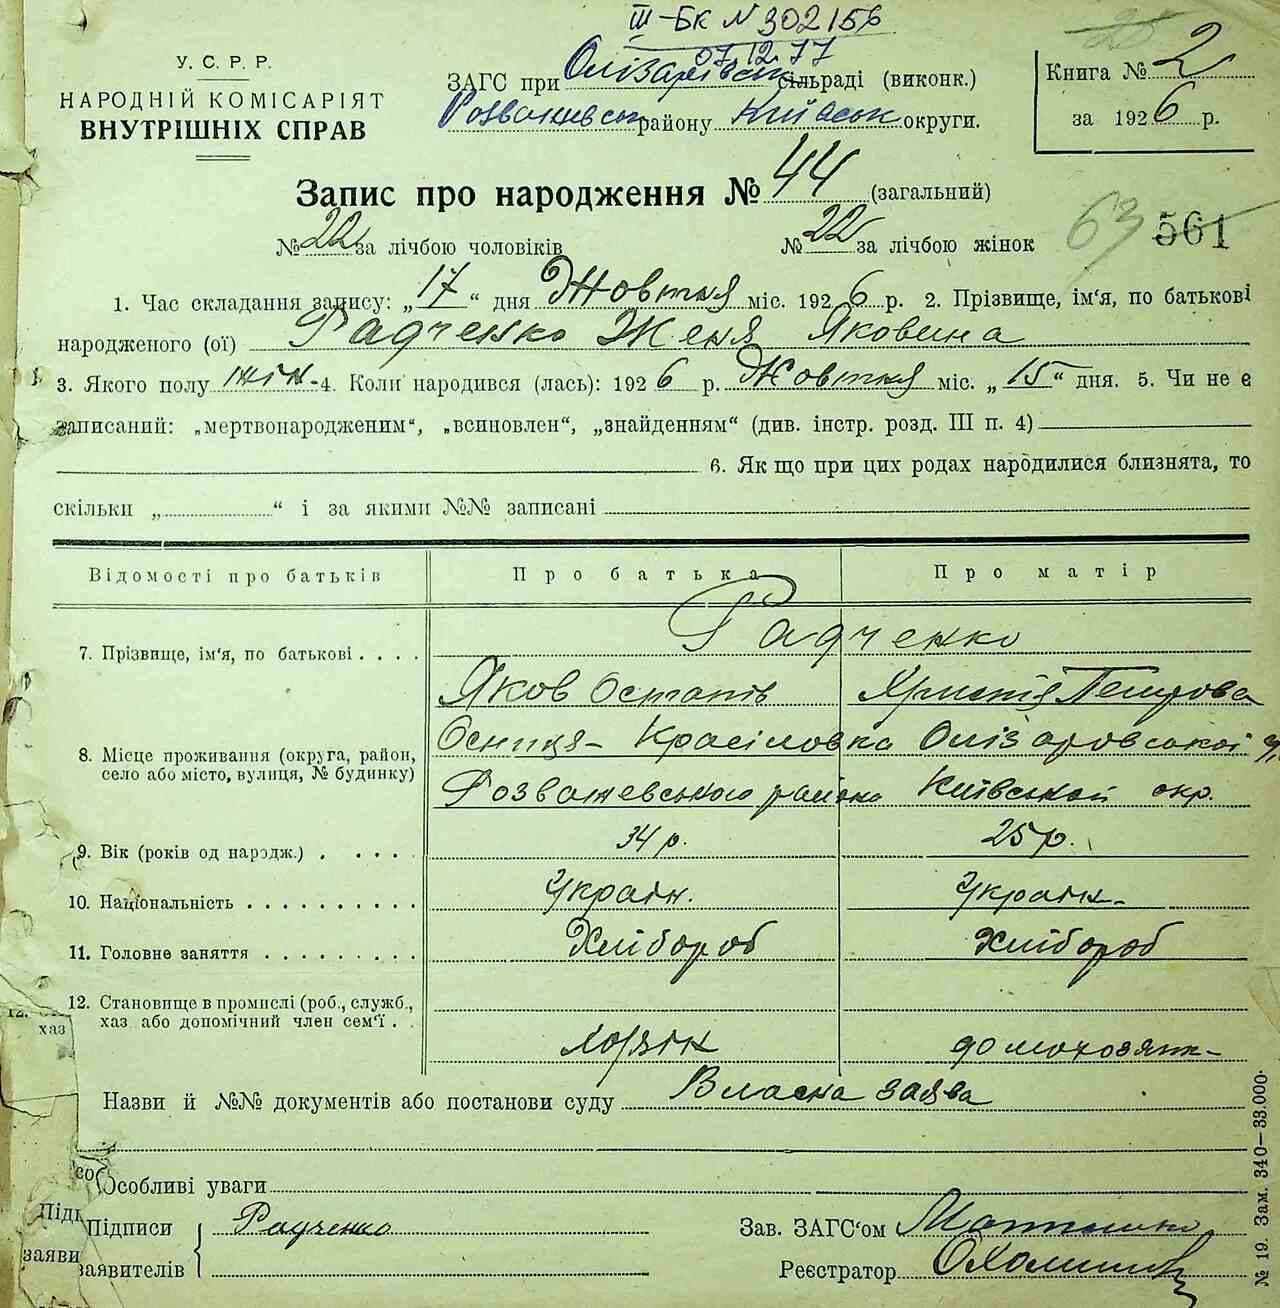 ІІІ-БК № 302156
07.12.77
У. С. Р. Р.
НАРОДНІЙ КОМІСАРІЯТ
ВНУТРІШНІХ СПРАВ
ЗАГС при Олізарівськ сільраді (виконк.)
Розважівськ району Київськ округи.
Книга № 2
за 1926 р.
Запис про народження № 44 (загальний)
№ 22 за лічбою чоловіків № 22 за лічбою жінок
63 561
1. Час складання запису: „17“ дня Жовтня міс. 1926 р. 2. Прізвище, ім‘я, по батькові
народженого (ої) Радченко Женя Яковина
3. Якого полу жін- 4. Коли народився (лась): 1926 р. Жовтня міс. „15“ дня. 5. Чи не є
записаний: „мертвонародженим“, „всиновлен“, „знайденням“ (див. інстр. розд. III п. 4)
6. Як що при цих родах народилися близнята, то
скільки „ “ і за якими №№ записані
Відомості про батьків Про батька Про матір
Радченко
7. Прізвище, ім‘я, по батькові . . . .
Яков Остапів Христія Петрова
8. Місце проживання (округа, район,
село або місто, вулиця, № будинку)
Осниця-Красіловка Олізаровської
Розважевського района Київської окр.
9. Вік (років од народж.) . . . . . 34 р. 25 р.
10. Національність . . . . . . . . . . Україн. Україн.
11. Головне заняття . . . . . . . . . Хлібороб Хлібороб
12. Становище в промислі (роб., служб.,
хаз або допомічний член сем‘ї . .
хозяїн домохозяйк-
Назви й №№ документів або постанови суду Власна заява
Особливі уваги
Підписи заявителів Радченко
Зав. ЗАГС‘ом
Реєстратор
№ 19. Зам. 340—33.000.